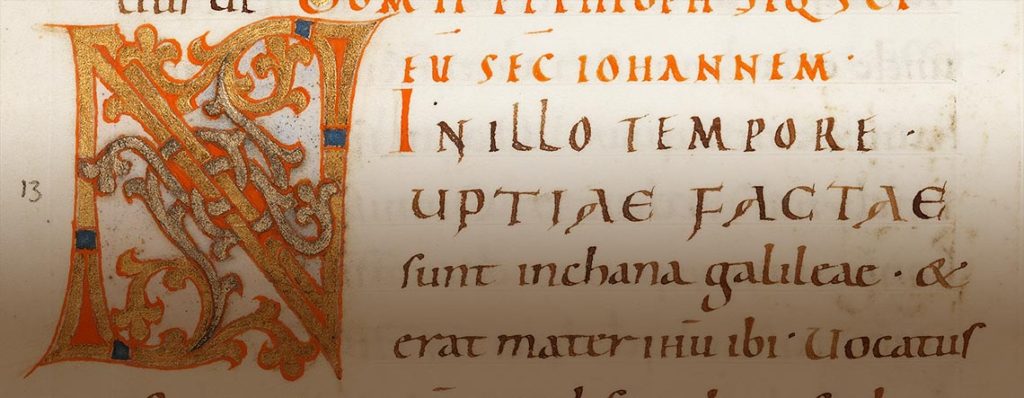 DOM II P THEOPH SEQ SCI
EU SEC IOHANNEM ·
IN ILLO TEMPORE ·
NUPTIAE FACTAE
13
sunt inchana galileae · &
erat mater ihū ibi · Uocatus